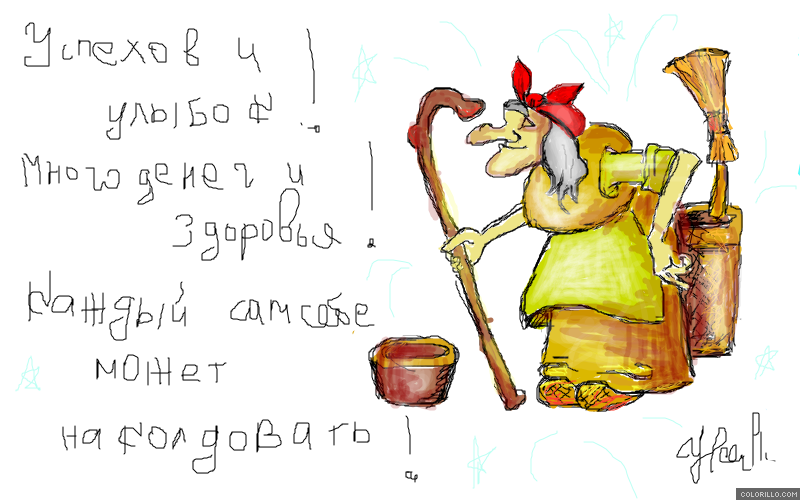 Успехов и
улыбок!
Много денег и
здоровья!
Каждый сам себе
может
наколдовать!
COLORILLO.COM